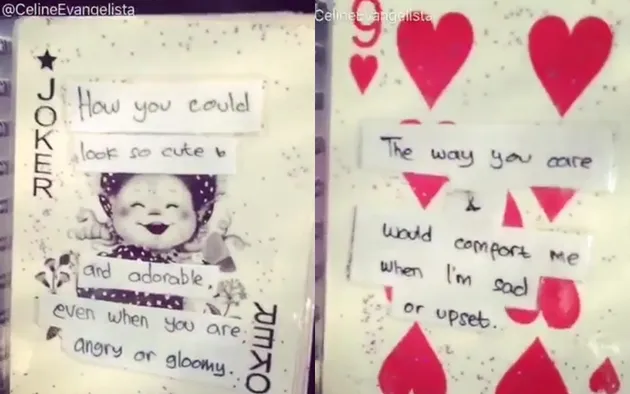 @CelineEvangelista
JOKER
How you could
look so cute &
and adorable,
even when you are
angry or gloomy.
JOKER
CelineEvangelista
9
The way you care
&
would comfort me
when I'm sad
or upset.